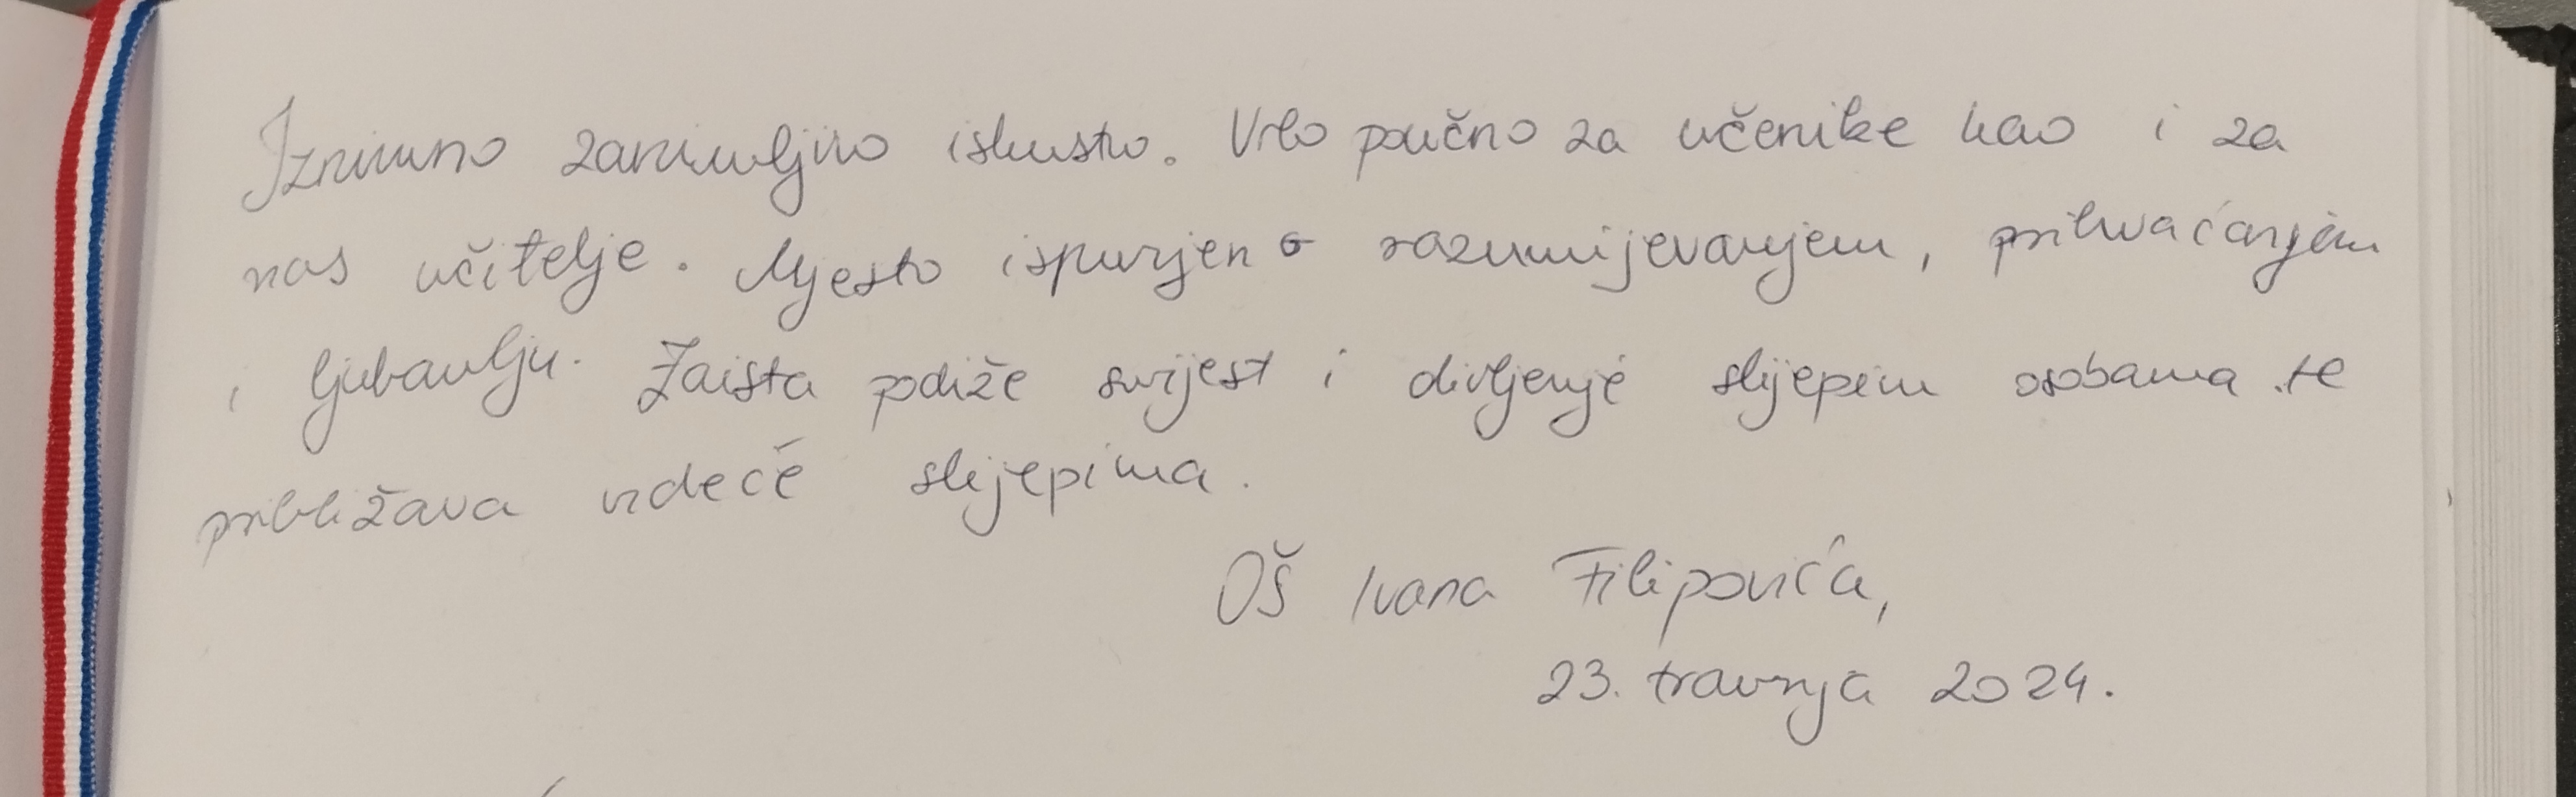 Iznimno zanimljivo iskustvo. Vrlo poučno za učenike kao i za
nas učitelje. Mjesto ispunjeno razumijevanjem, prihvaćanjem
i ljubavlju. Zaista podiže svijest i divljenje slijepim osobama te
približava videće slijepima.
OŠ Ivana Filipovića,
23. travnja 2024.